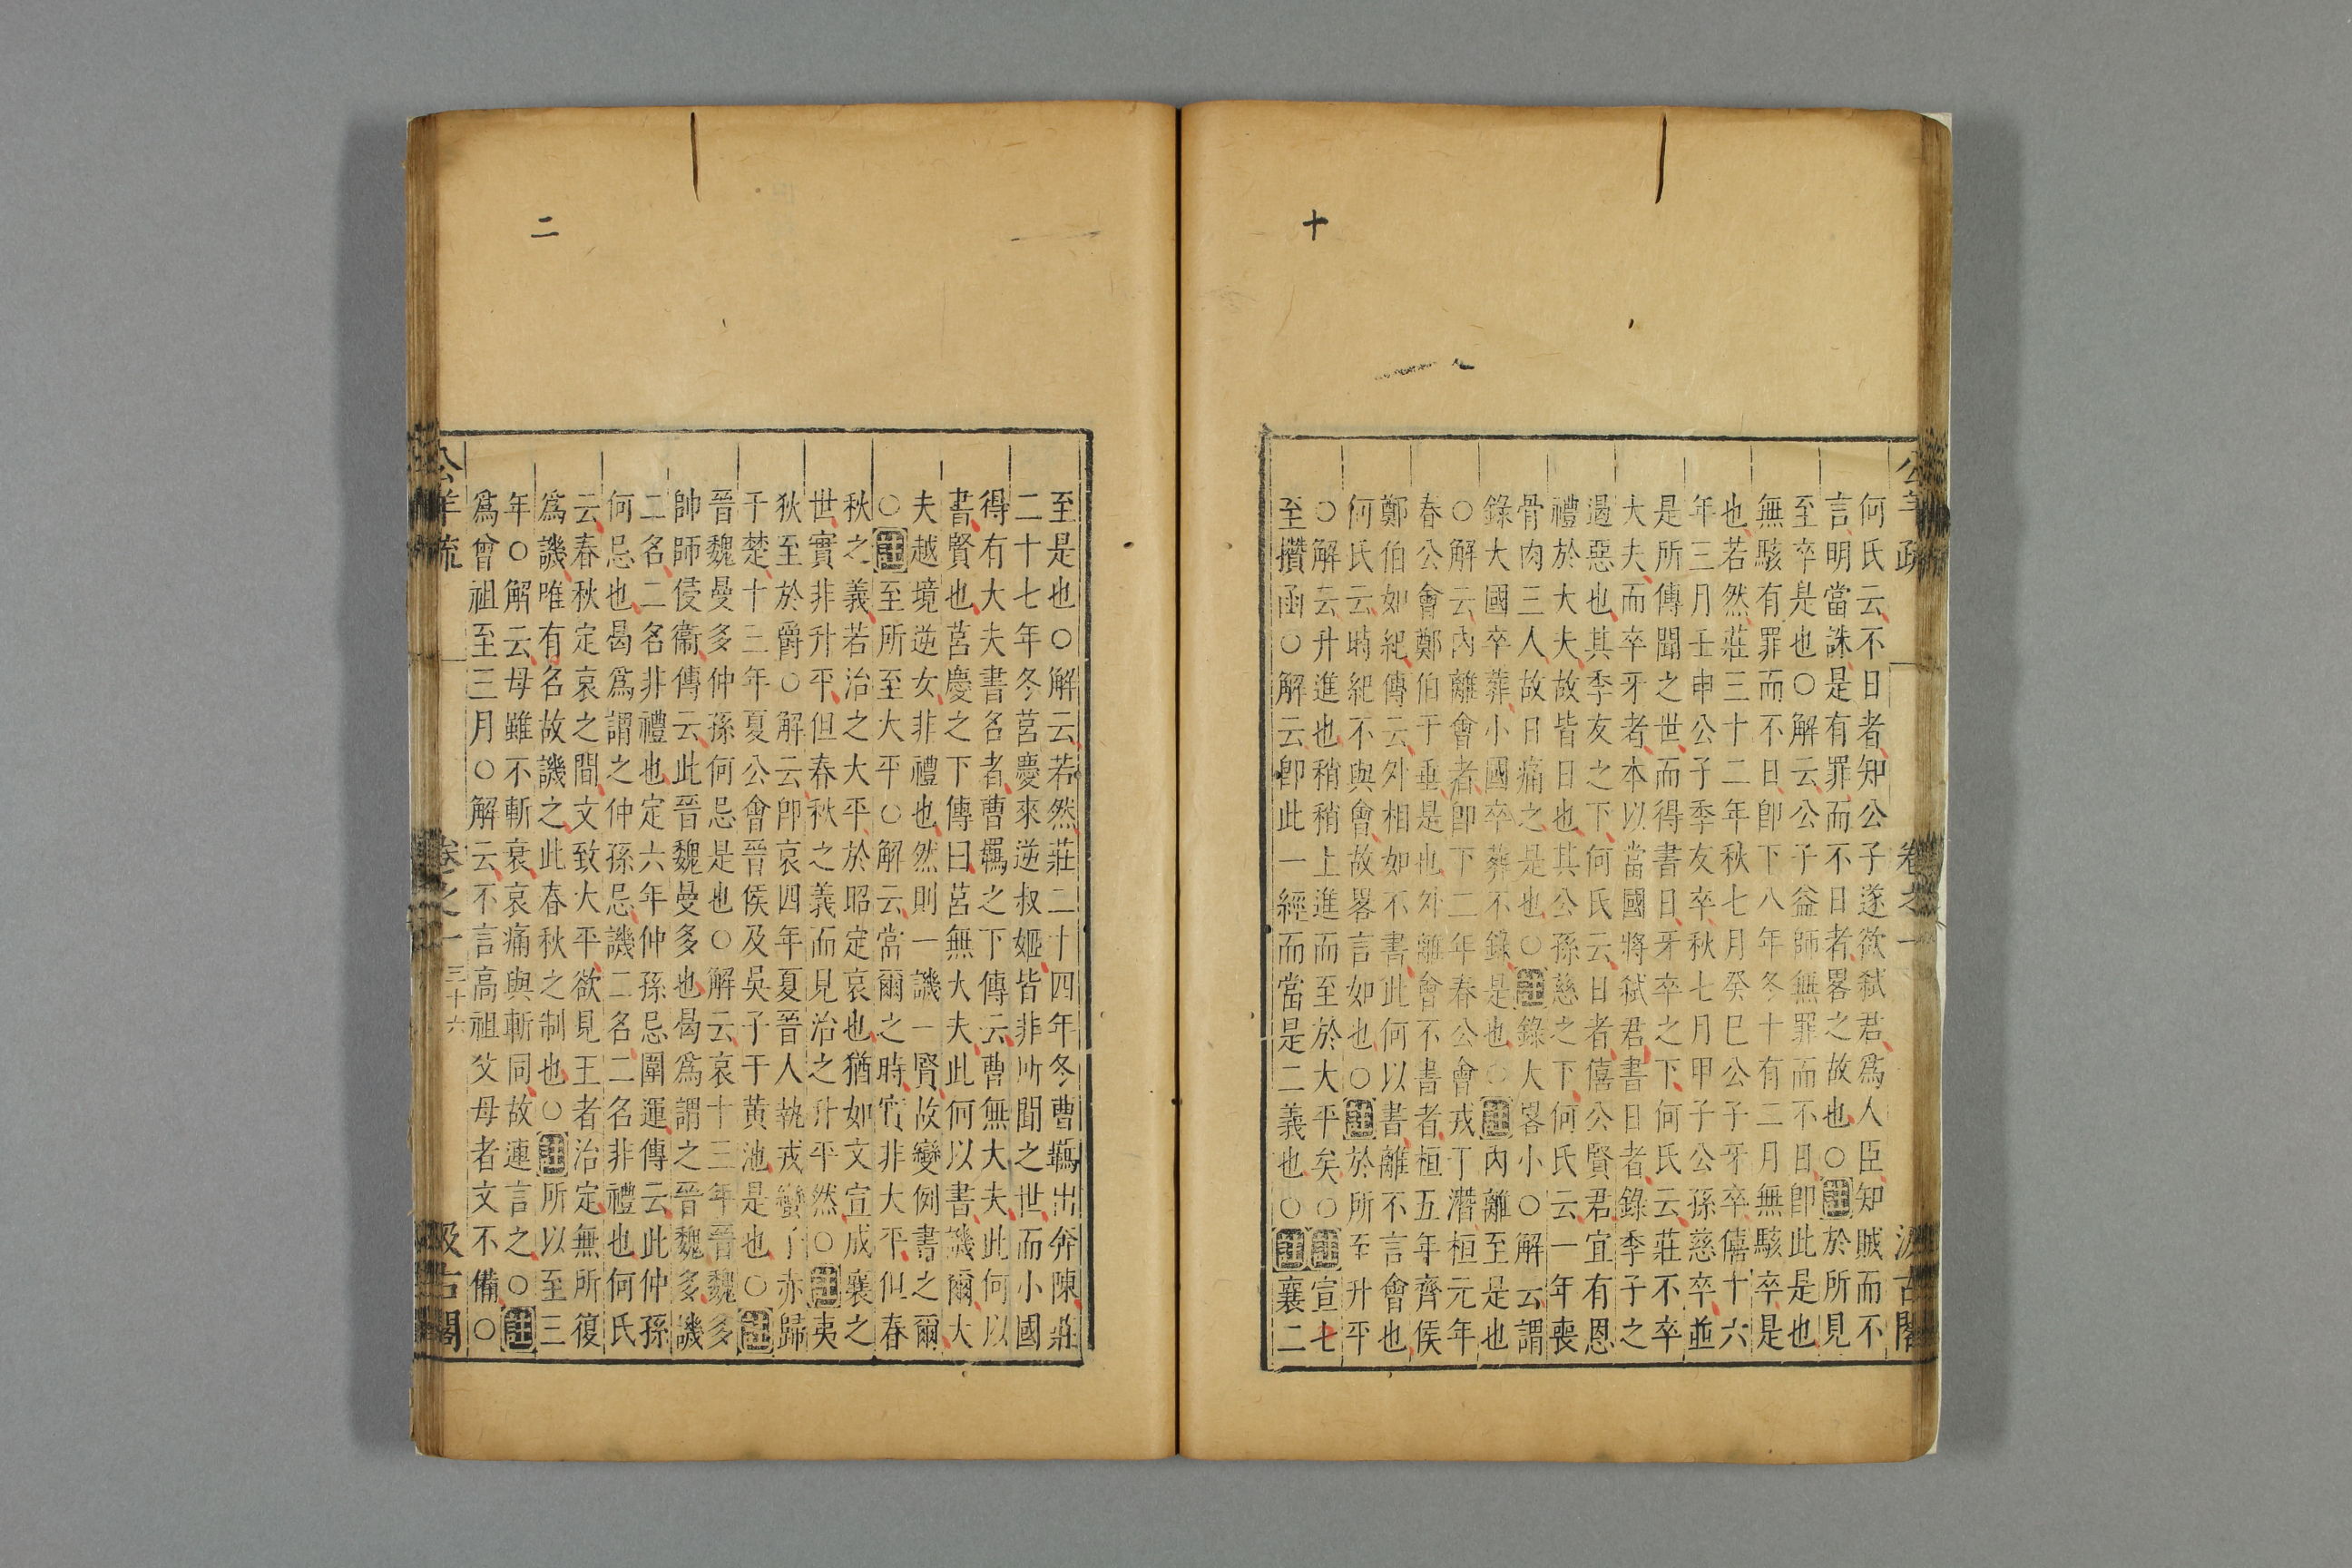 十
公羊疏 卷之一 汲古閣
何氏云不日者知公子遂欲弑君爲人臣知賊而不
言明當誅是有罪而不日者畧之故也○注於所見
至卒是也○解云公子益師無罪而不日卽此是也
無駭有罪而不日卽下八年冬十有二月無駭卒是
也若然莊三十二年秋七月癸巳公子牙卒僖十六
年三月壬申公子季友卒秋七月甲子公孫慈卒並
是所傳聞之世而得書日牙卒之下何氏云莊不卒
大夫而卒牙者本以當國將弑君書日者錄季子之
遏惡也其季友之下何氏云日者僖公賢君宜有恩
禮於大夫故皆日也其公孫慈之下何氏云一年喪
骨肉三人故日痛之是也○注錄大畧小○解云謂
錄大國卒葬小國卒葬不錄是也○注內離至是也
○解云內離會者卽下二年春公會戎于潛桓元年
春公會鄭伯于垂是也外離會不書者桓五年齊侯
鄭伯如紀傳云外相如不書此何以書離不言會也
何氏云時紀不與會故畧言如也○注於所至升平
○解云升進也稍稍上進而至於大平矣○注宣七
至攢函○解云卽此一經而當是二義也○注襄二
二
至是也○解云若然莊二十四年冬曹羈出奔陳莊
二十七年冬莒慶來逆叔姬皆非所聞之世而小國
得有大夫書名者曹羈之下傳云曹無大夫此何以
書賢也莒慶之下傳曰莒無大夫此何以書譏爾大
夫越境逆女非禮也然則一譏一賢故變例書之爾
○注至所至大平○解云當爾之時實非大平但春
秋之義若治之大平於昭定哀也猶如文宣成襄之
世實非升平但春秋之義而見治之升平然○注夷
狄至於爵○解云卽哀四年夏晉人執戎蠻子赤歸
于楚十三年夏公會晉侯及吳子于黃池是也○注
晉魏曼多仲孫何忌是也○解云哀十三年晉魏多
帥師侵衞傳云此晉魏曼多也曷爲謂之晉魏多譏
二名二名非禮也定六年仲孫忌圍運傳云此仲孫
何忌也曷爲謂之仲孫忌譏二名二名非禮也何氏
云春秋定哀之間文致大平欲見王者治定無所復
爲譏唯有名故譏之此春秋之制也○注所以至三
年○解云母雖不斬衰哀痛與斬同故連言之○注
爲曾祖至三月○解云不言高祖父母者文不備○
公羊疏 卷之一 三十六 汲古閣